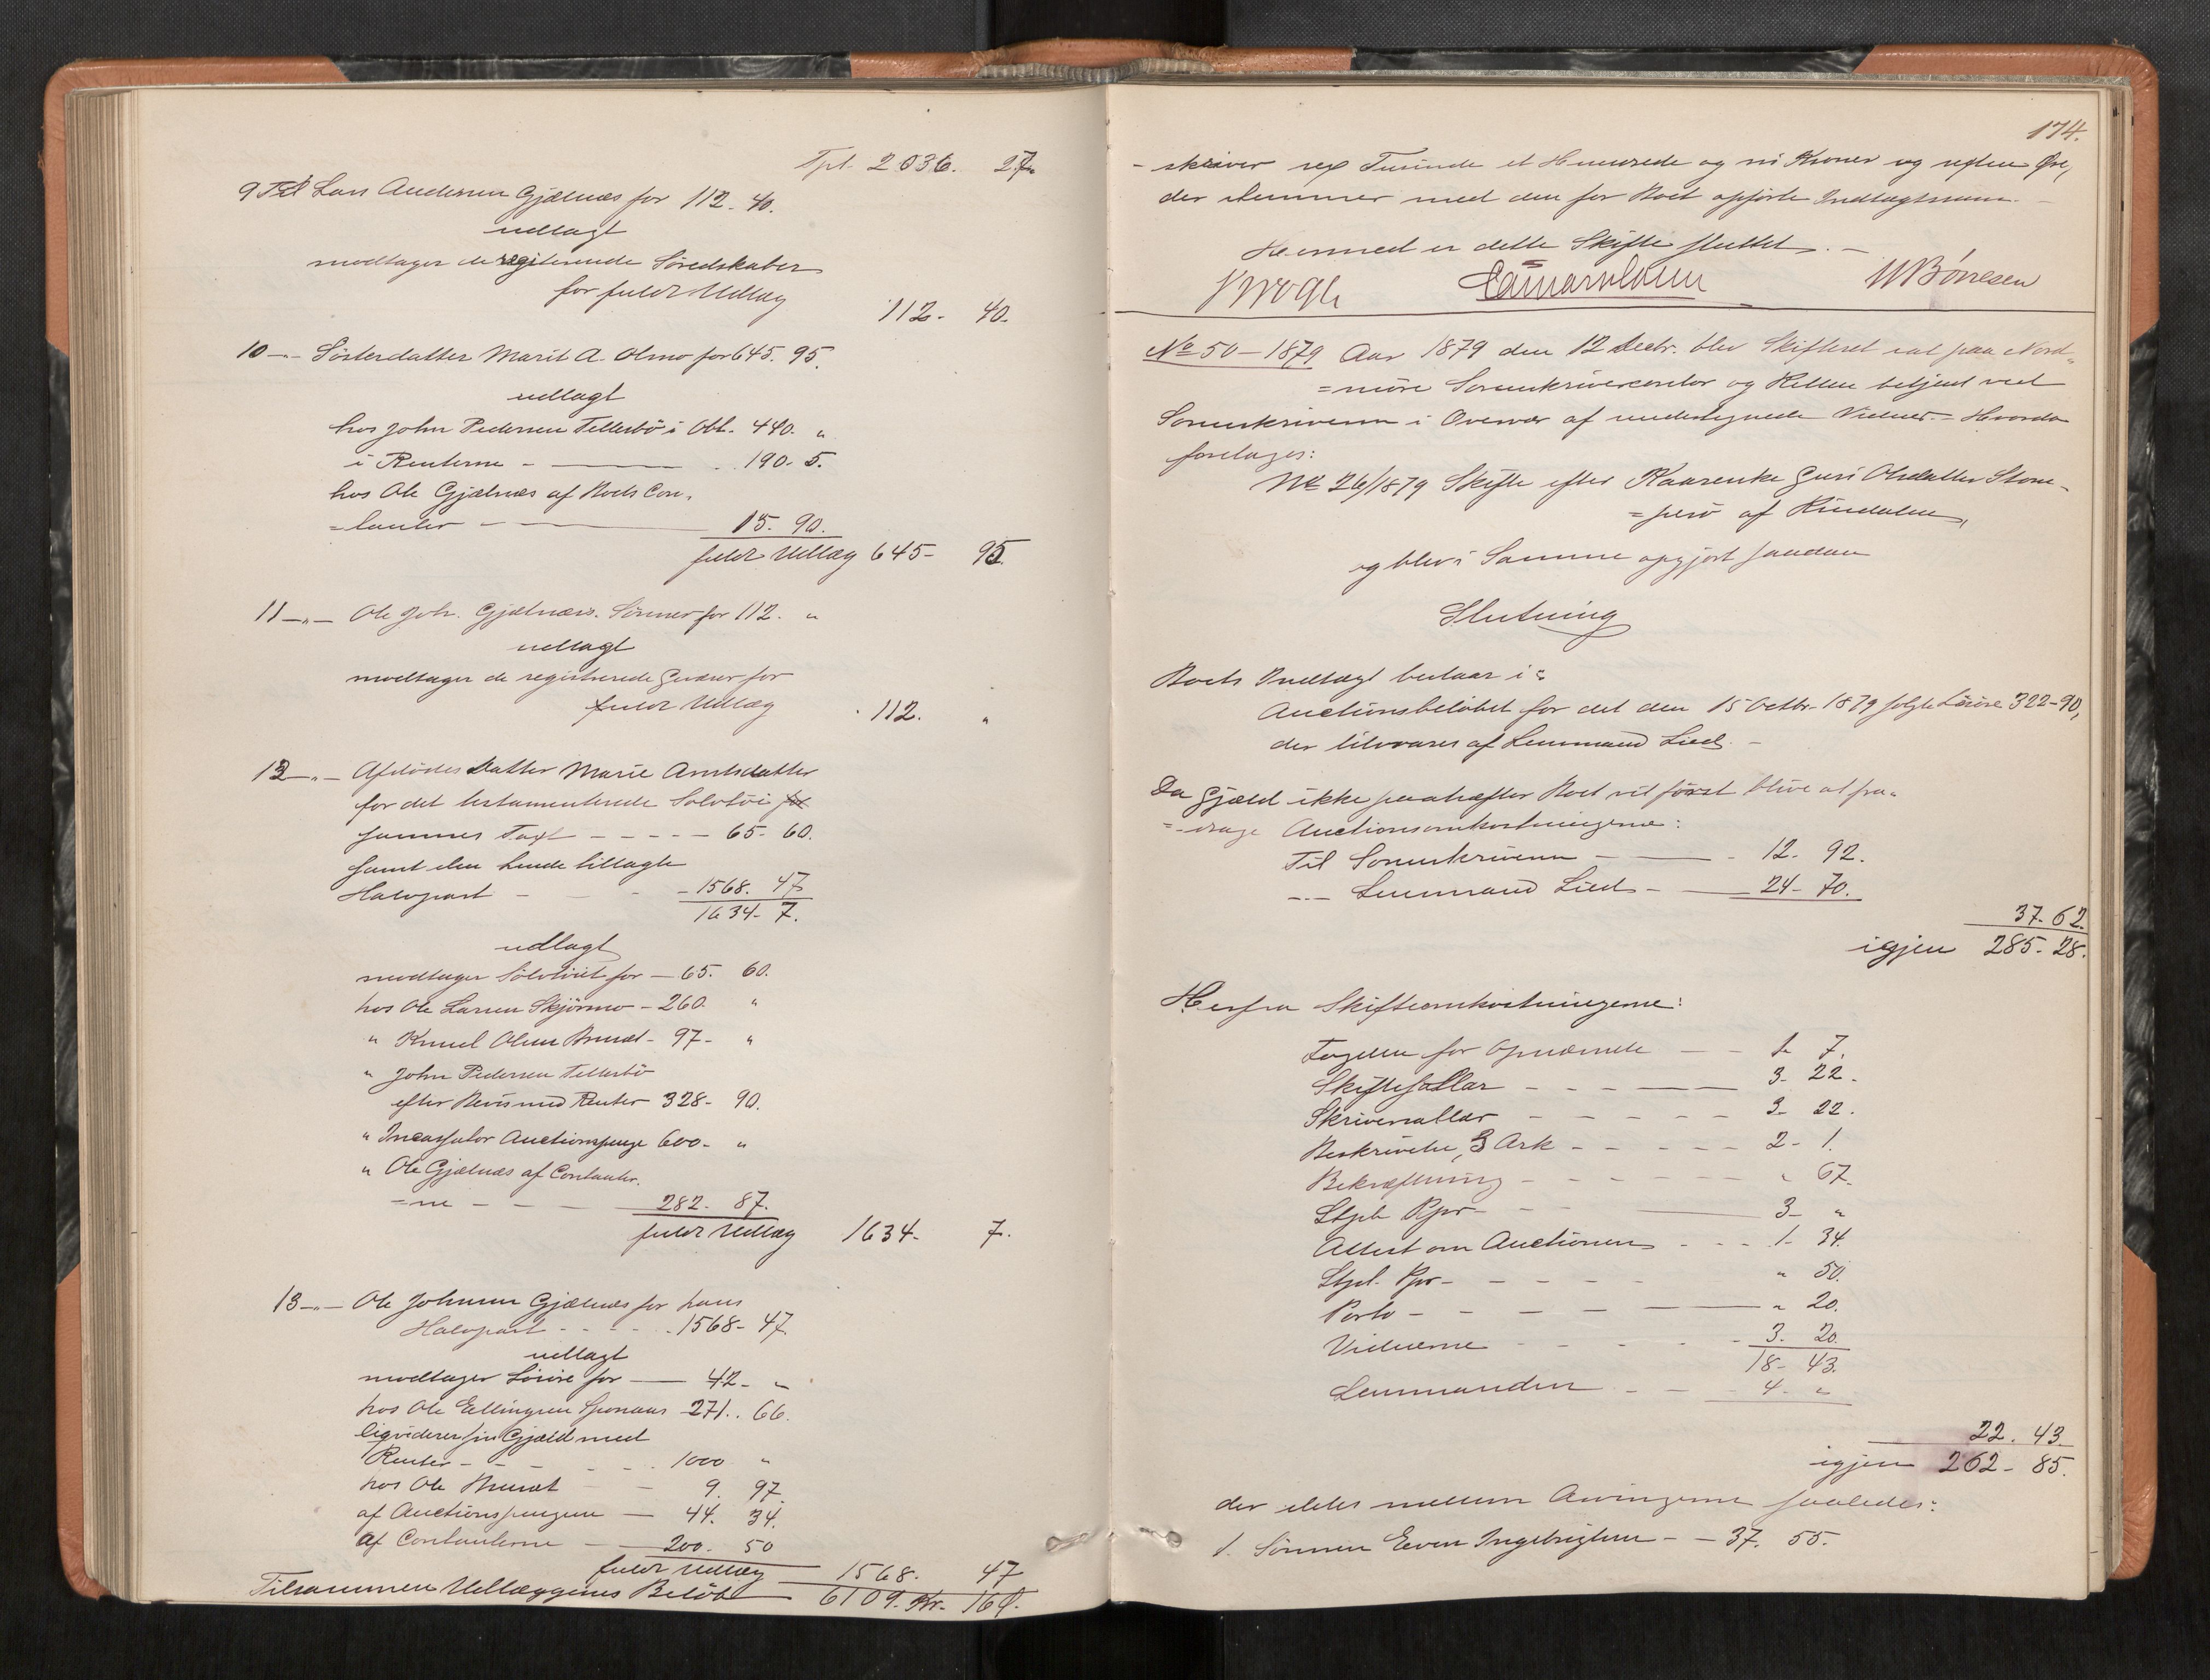 Tpt. 2036. 27.
9 Til Lars Andersen Gjælnæs for 112. 40.
udlagt
modtager de registrerede Søredskaber
for fuldt Udlæg 112. 40.
10 -"- Søsterdatter Marit A. Olmo for 645. 95.
udlagt
hos John Pedersen Tellesbø i Obl. 440. "
i Renterne - 190. 5.
hos Ole Gjælnæs af Boets Con-
=tanter - 15. 90.
fuldt Udlæg 645- 95.
11 -"- Ole Joh. Gjælnæs. Sønner for 112. "
udlagt
modtager de registrerede Geværer for
fuldt Udlæg 112. "
12 -"- Afdødes Datter Marie Arntsdatter
for det testamenterede Sølvtøi for
sammes Taxt - - - - - 65- 60.
samt den hende tillagte
Halvpart - - - 1568. 47
1634- 7.
udlagt
modtager Sølvtøiet for - 65. 60.
hos Ole Larsen Skjørmo - 260. "
" Knud Olsen - 97- "
" John Pedersen Tellesbø
efter Bevis med Renter 328- 90.
" Incassator Auctionspenge 600- "
" Ole Gjælnæs af Contanter-
=ne - - - 282. 87.
fuldt Udlæg 1634- 7.
13 -"- Ole Johnsen Gjælnæs for hans
Halvpart - - - - 1568- 47
udlagt
modtager Løsøre for - 42- "
hos Ole Ellingsen 271. 66.
ligviderer sin Gjæld med
Renter - - - - 1000 "
hos Ole - - 9. 97
af Auctionspengene - 44. 34.
af Contanterne - 200. 50
fuldt Udlæg 1568. 47
Tilsammen Udlæggenes Beløb 6109. Kr. 16 Ø.
174.
- skriver sex Tusinde et Hundrede og ni Kroner og sexten Øre,
der stemmer med den for Boet opførte Indtægtssum. -
Hermed er dette Skifte sluttet. -
Krogh WBørresen
No 50 - 1879 Aar 1879 den 12 Decbr. blev Skifteret sat paa Nord-
=møre Sorenskrivercontor og Retten betjent ved
Sorenskriveren i Overvær af undertegnede Vidner. - Hvorda
foretages:
No 26/1879 Skifte efter Kaarenke Guri Olsdatter Stom-
=perø af Rindalen,
og blev i Samme opgjort saadan
Slutning
Boets Indtægt bestaar i:
Auctionsbeløbet for det den 15 Octbr. 1879 solgte Løsøre 322-90,
der tilsvares af Lensmand Lied. -
Da Gjæld ikke paahæfter Boet vil først blive at fra-
=drage Auctionsomkostningerne:
Til Sorenskriveren - 12. 92.
-"- Lensmand Lied - 24- 70.
37. 62.
igjen 285- 28.
Herfra Skifteomkostningerne:
Tagelsen for Opnævnelse - - 1- 7.
Skiftesallar - - - - 3- 22.
Skriversallar - - - - - 3- 22.
Beskrivelse, 3 Ark - - - - - 2- 1.
Bekræftning - - - - - - " 67.
Stplt Ppr - - - 3- "
Attest om Auctionen - - - 1- 34.
Stpl. Ppr - - - - - " 50.
Porto - - - - - " 20.
Vidnerne - - - - - 3. 20.
18- 43.
Lensmanden - - - 4. "
22. 43.
igjen 262- 85.
der deles mellem Arvingerne saaledes:
1. Sønnen Even Ingebrigtsen - - 37. 55.